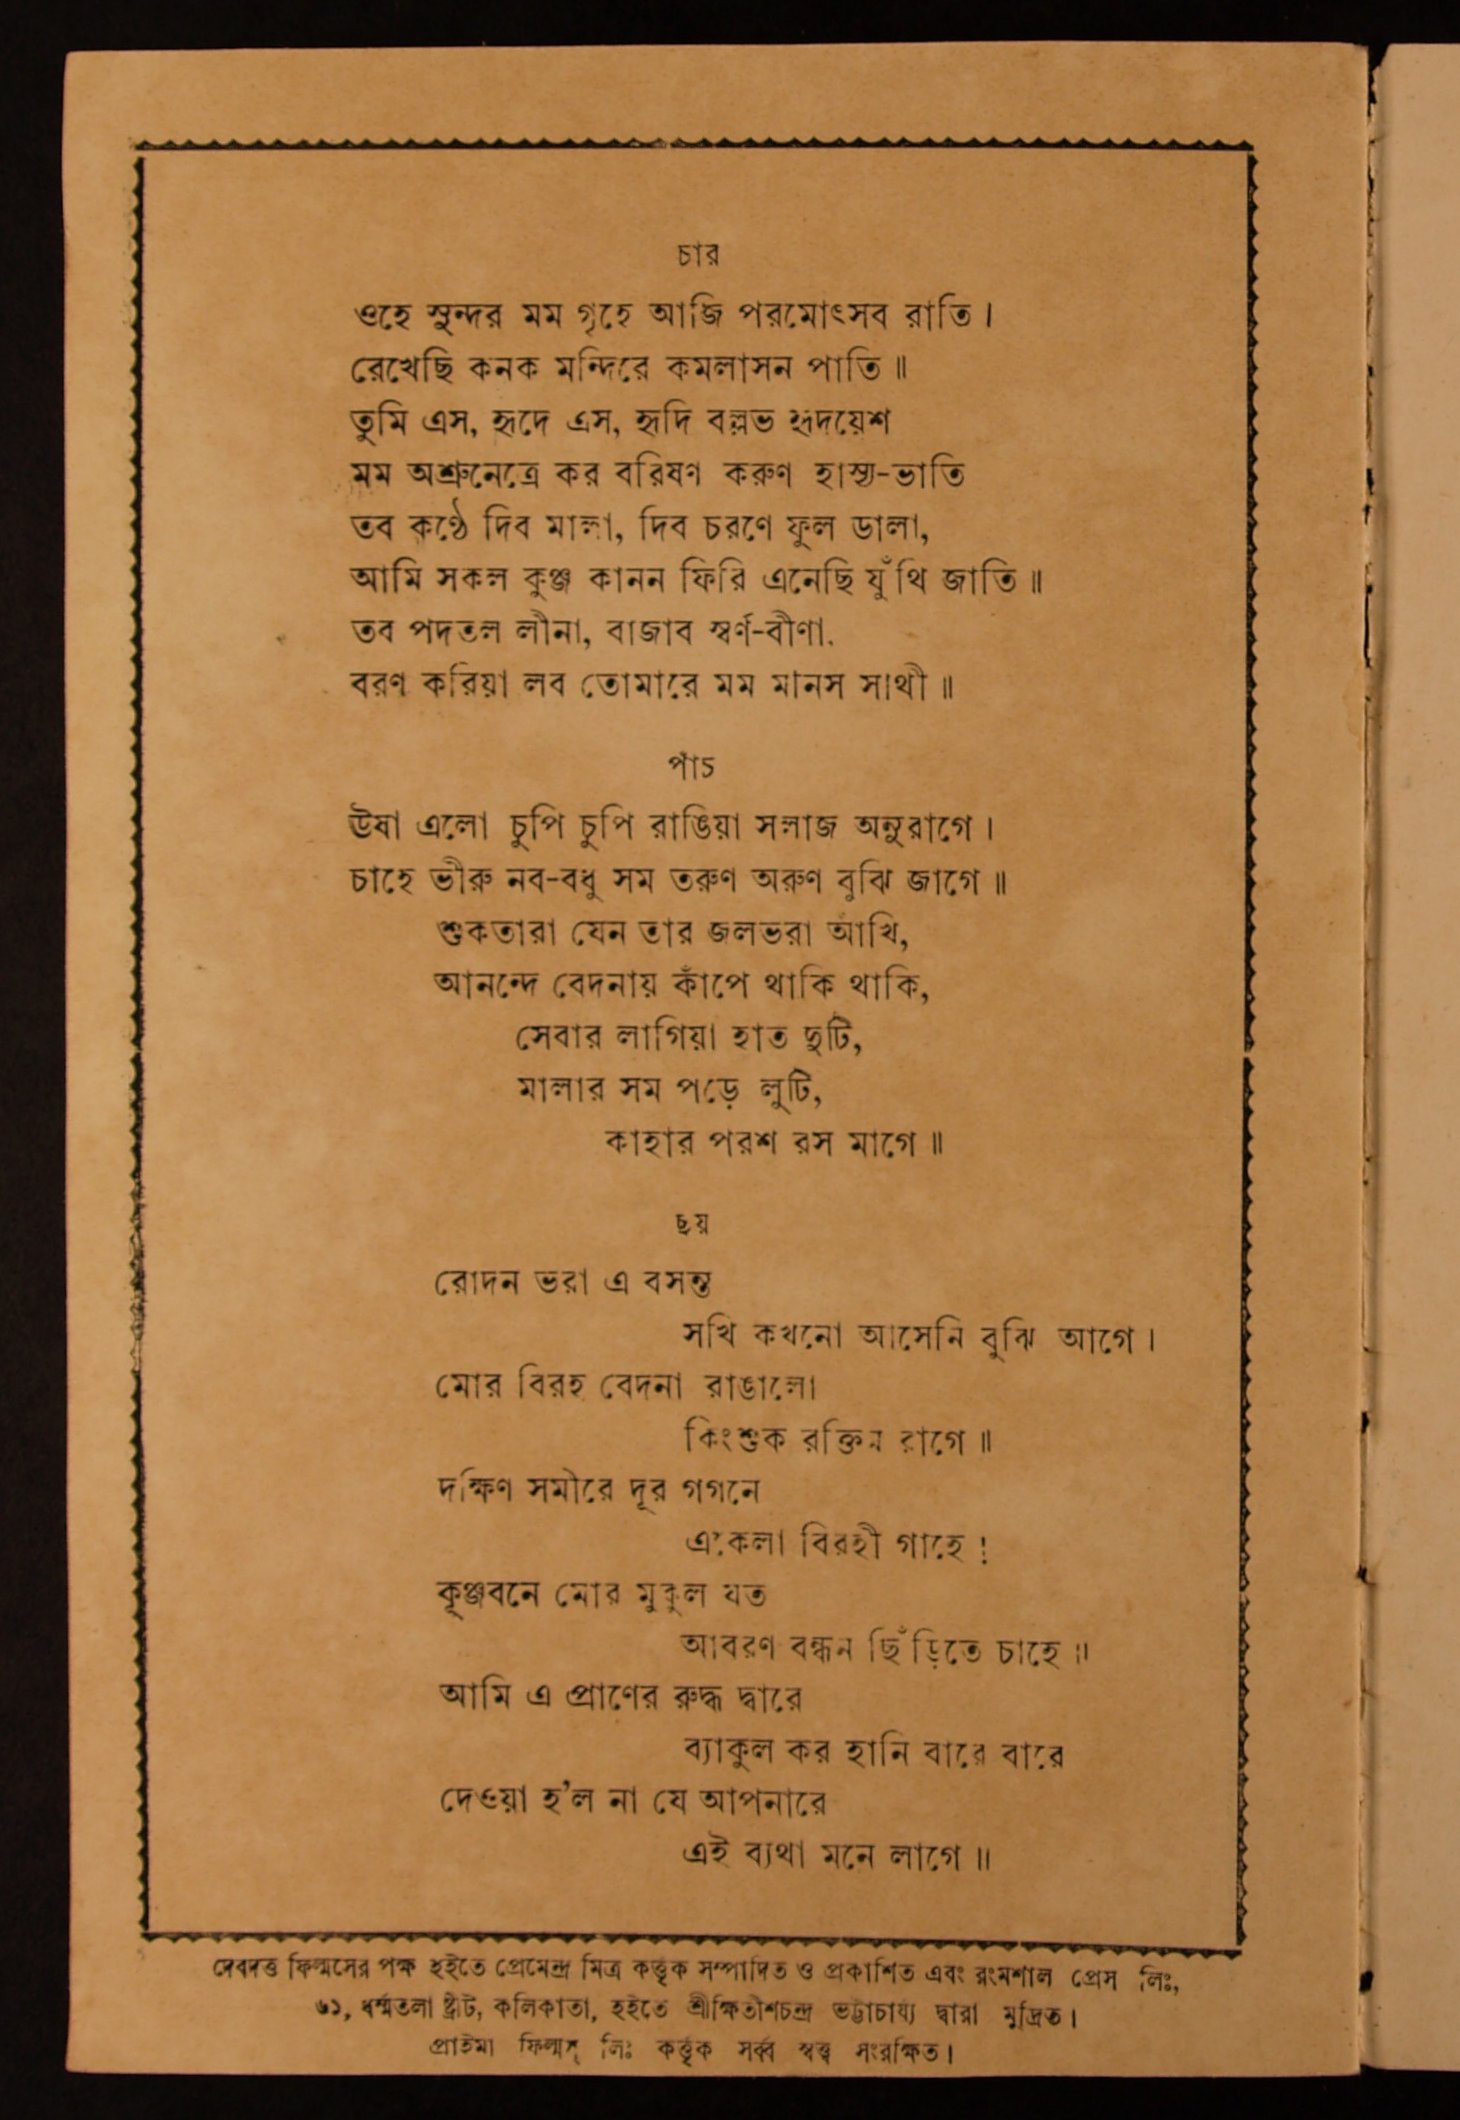 চার
ওহে সুন্দর মম গৃহে আজি পরমোৎসব রাতি ।
রেখেছি কনক মন্দিরে কমলাসন পাতি ॥
তুমি এস, হৃদে এস, হৃদি বল্লভ হৃদয়েশ
মম অশ্রুনেত্রে কর বরিষণ করুণ হাস্য-ভাতি
তব কণ্ঠে দিব মালা, দিব চরণে ফুল ডালা,
আমি সকল কুঞ্জ কানন ফিরি এনেছি যুঁথি জাতি ॥
তব পদতল লীনা, বাজাব স্বর্ণ-বীণা.
বরণ করিয়া লব তোমারে মম মানস সাথী ॥
পাঁচ
ঊষা এলো চুপি চুপি রাঙিয়া সলাজ অনুরাগে ।
চাহে ভীরু নব-বধু সম তরুণ অরুণ বুঝি জাগে ॥
শুকতারা যেন তার জলভরা আঁখি,
আনন্দে বেদনায় কাঁপে থাকি থাকি,
সেবার লাগিয়া হাত দুটি,
মালার সম পড়ে লুটি,
কাহার পরশ রস মাগে ॥
ছয়
রোদন ভরা এ বসন্ত
সখি কখনো আসেনি বুঝি আগে ।
মোর বিরহ বেদনা রাঙালো
কিংশুক রক্তিম রাগে ॥
দক্ষিণ সমীরে দূর গগনে
একেলা বিরহী গাহে !
কুঞ্জবনে মোর মুকুল যত
আবরণ বন্ধন ছিঁড়িতে চাহে ॥
আমি এ প্রাণের রুদ্ধ দ্বারে
ব্যাকুল কর হানি বারে বারে
দেওয়া হ'ল না যে আপনারে
এই ব্যথা মনে লাগে ॥
দেবদত্ত ফিল্মসের পক্ষ হইতে প্রেমেন্দ্র মিত্র কর্ত্তৃক সম্পাদিত ও প্রকাশিত এবং রংমশাল প্রেস লিঃ,
৬১, ধর্ম্মতলা ষ্ট্রীট, কলিকাতা, হইতে শ্রীক্ষিতীশচন্দ্র ভট্টাচার্য্য দ্বারা মুদ্রিত ।
প্রাইমা ফিল্মস্ লিঃ কর্ত্তৃক সর্ব্ব স্বত্ত্ব সংরক্ষিত ।